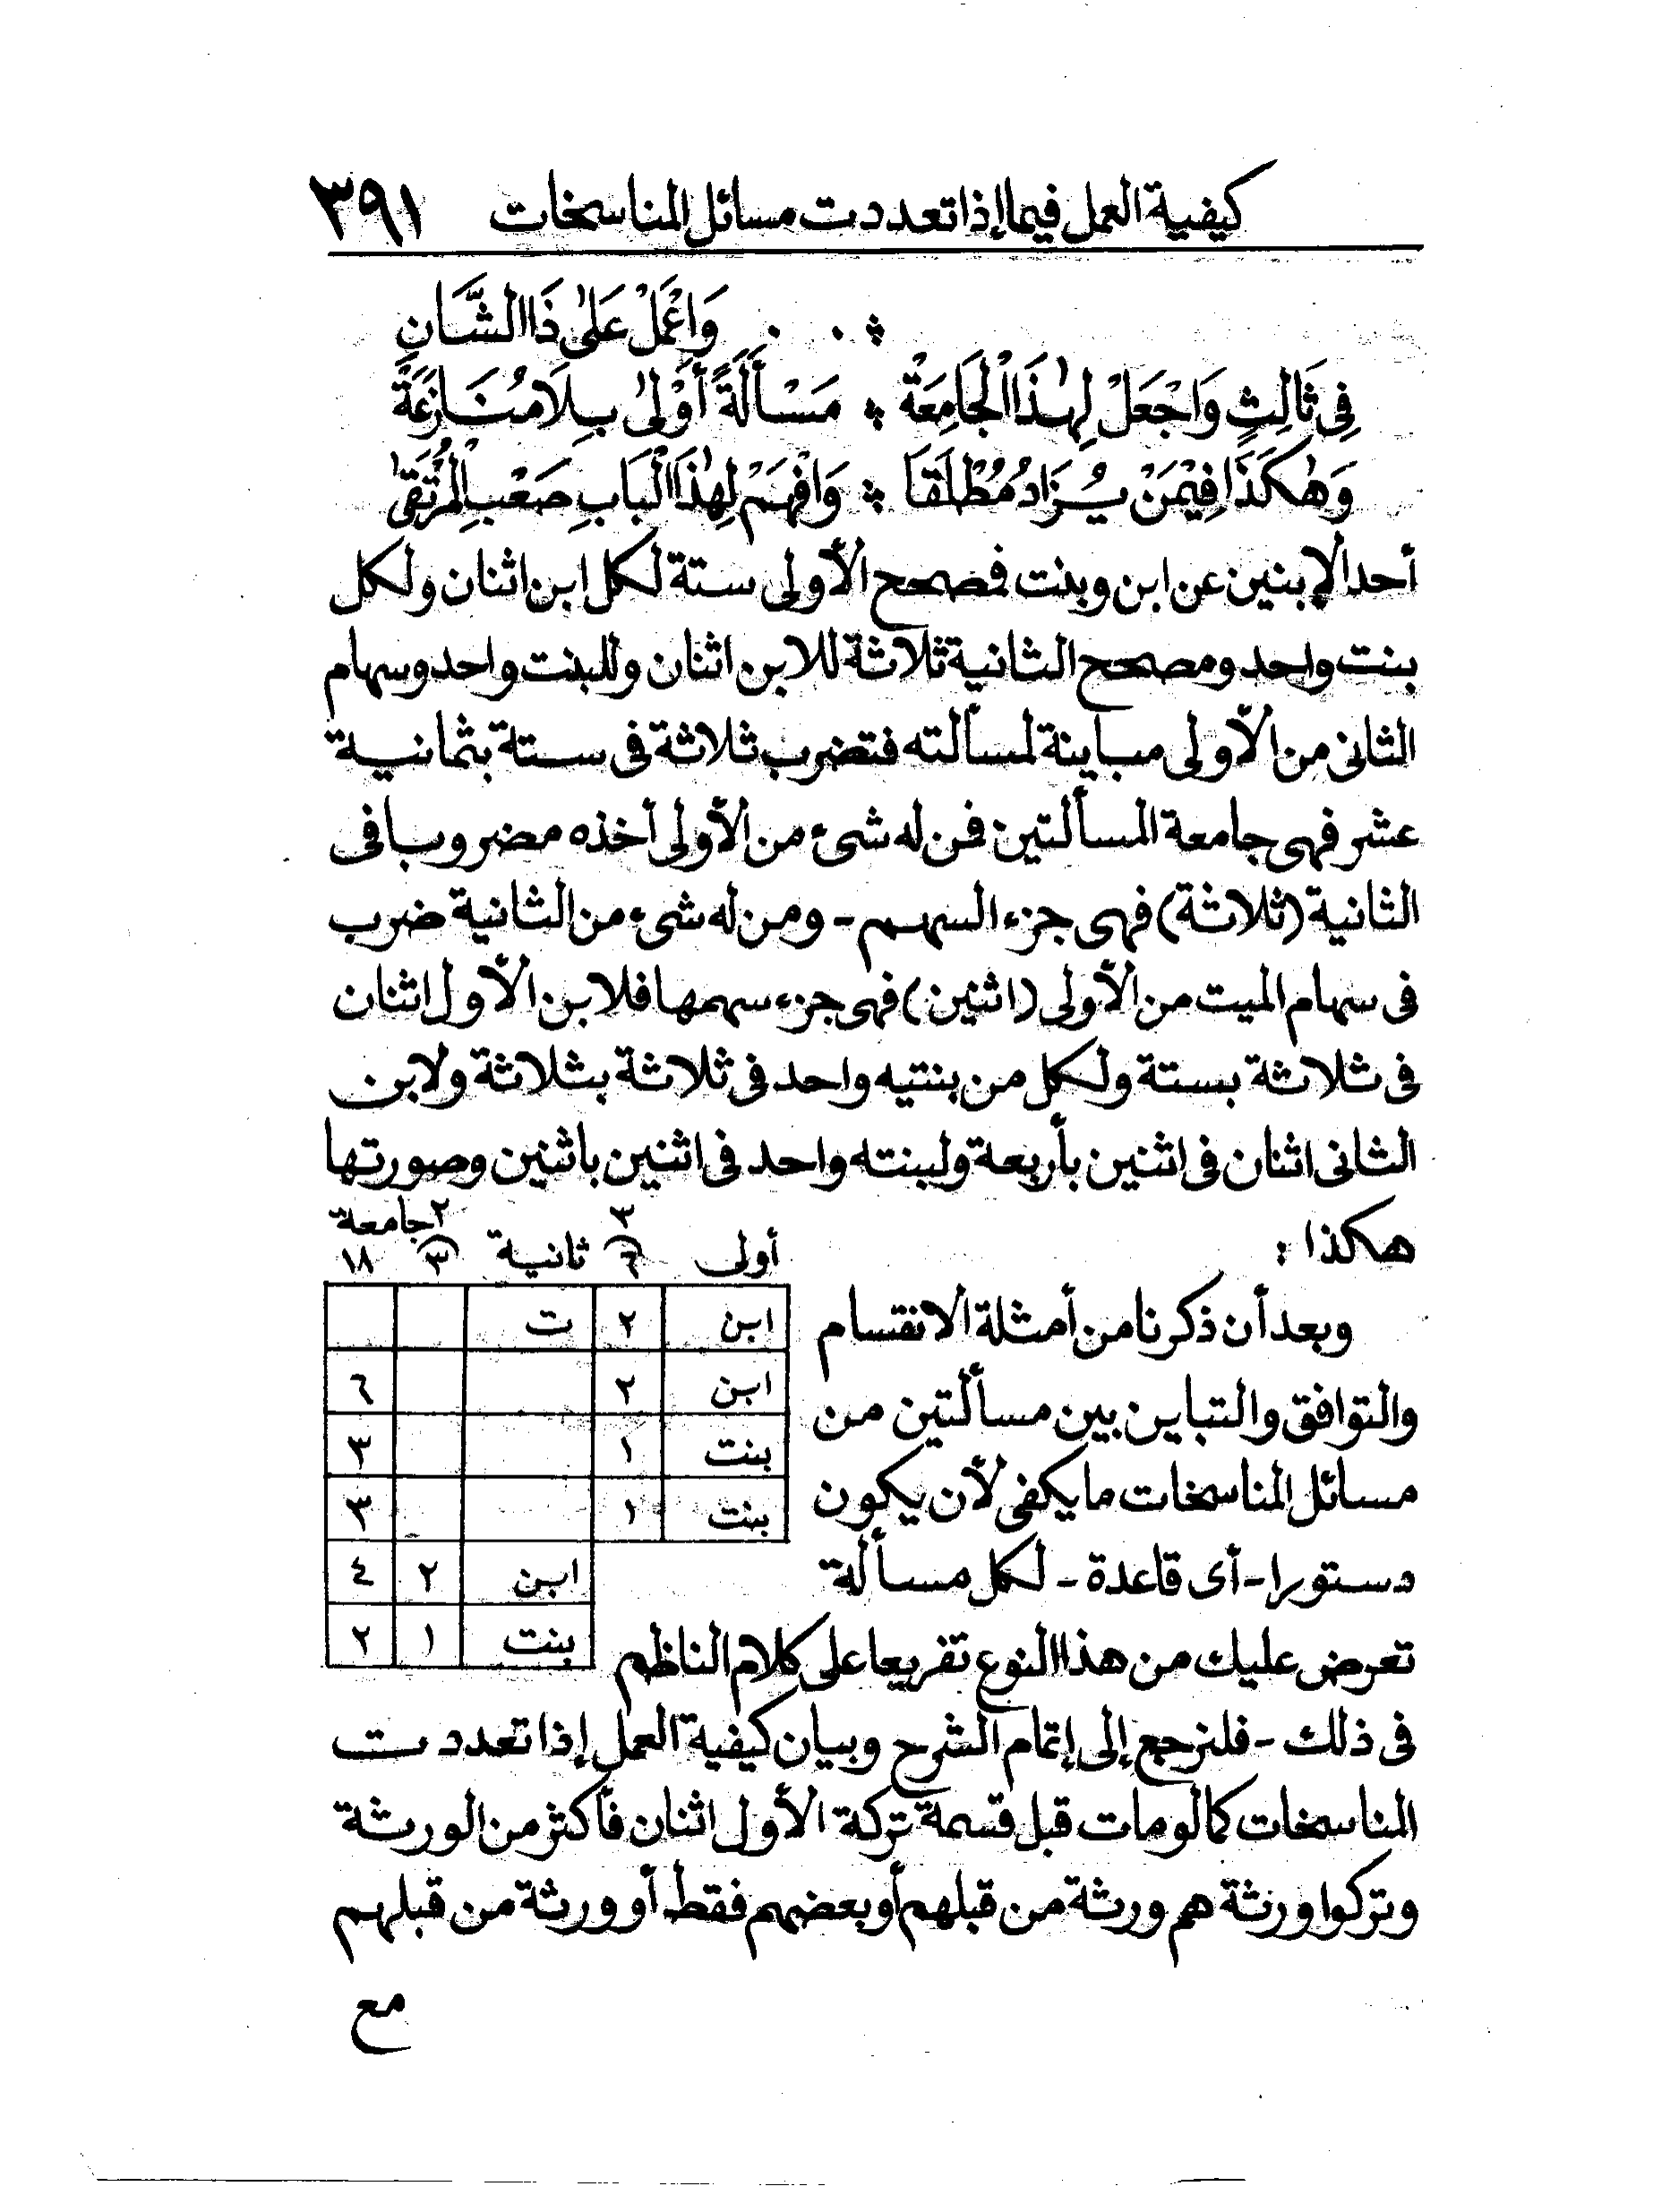 كيفية العمل فيما إذا تعددت مسائل المناسخات ٣٩١
* . . وَاعْمَلْ عَلَىٰ ذَا الشَّانِ
فِى ثَالِثٍ وَاجْعَلْ لِهٰذَا الْجَامِعَةْ * مَسْأَلَةً أُوْلىٰ بِلَا مُنَازَعَةْ
وَهٰكَذَا فِيْمَنْ يُزَادُ مُطْلَقَا * وَافْهَمْ لِهٰذَا الْبَابِ صَعْبِ الْمُرْتَقىٰ
أحد الإبنين عن ابن وبنت فمصحح الأولى ستة لكل ابن اثنان ولكل
بنت واحد ومصحح الثانية ثلاثة للابن اثنان وللبنت واحد وسهام
الثانى من الأولى مباينة لمسألته فتضرب ثلاثة فى ستة بثمانية
عشر فهى جامعة المسألتين فمن له شىء من الأولى أخذه مضروبا فى
الثانية (ثلاثة) فهى جزء السهم - ومن له شىء من الثانية ضرب
فى سهام الميت من الأولى (اثنين) فهى جزء سهمها فلابن الأول اثنان
فى ثلاثة بستة ولكل من بنتيه واحد فى ثلاثة بثلاثة ولابن
الثانى اثنان فى اثنين بأربعة ولبنته واحد فى اثنين باثنين وصورتها
هكذا :
٣ ٢ جامعة
أولى ٦ ثانية ٣ ١٨
ابن ٢ ت
ابن ٢ ٦
بنت ١ ٣
بنت ١ ٣
ابن ٢ ٤
بنت ١ ٢
وبعد أن ذكرنا من أمثلة الانقسام
والتوافق والتباين بين مسألتين من
مسائل المناسخات ما يكفى لأن يكون
دستورا - أى قاعدة - لكل مسألة
تعرض عليك من هذا النوع تفريعا على كلام الناظم
فى ذلك - فلنرجع إلى إتمام الشرح وبيان كيفية العمل إذا تعددت
المناسخات كما لو مات قبل قسمة تركة الأول اثنان فأكثر من الورثة
وتركوا ورثة هم ورثة من قبلهم أو بعضهم فقط أو ورثة من قبلهم
مع